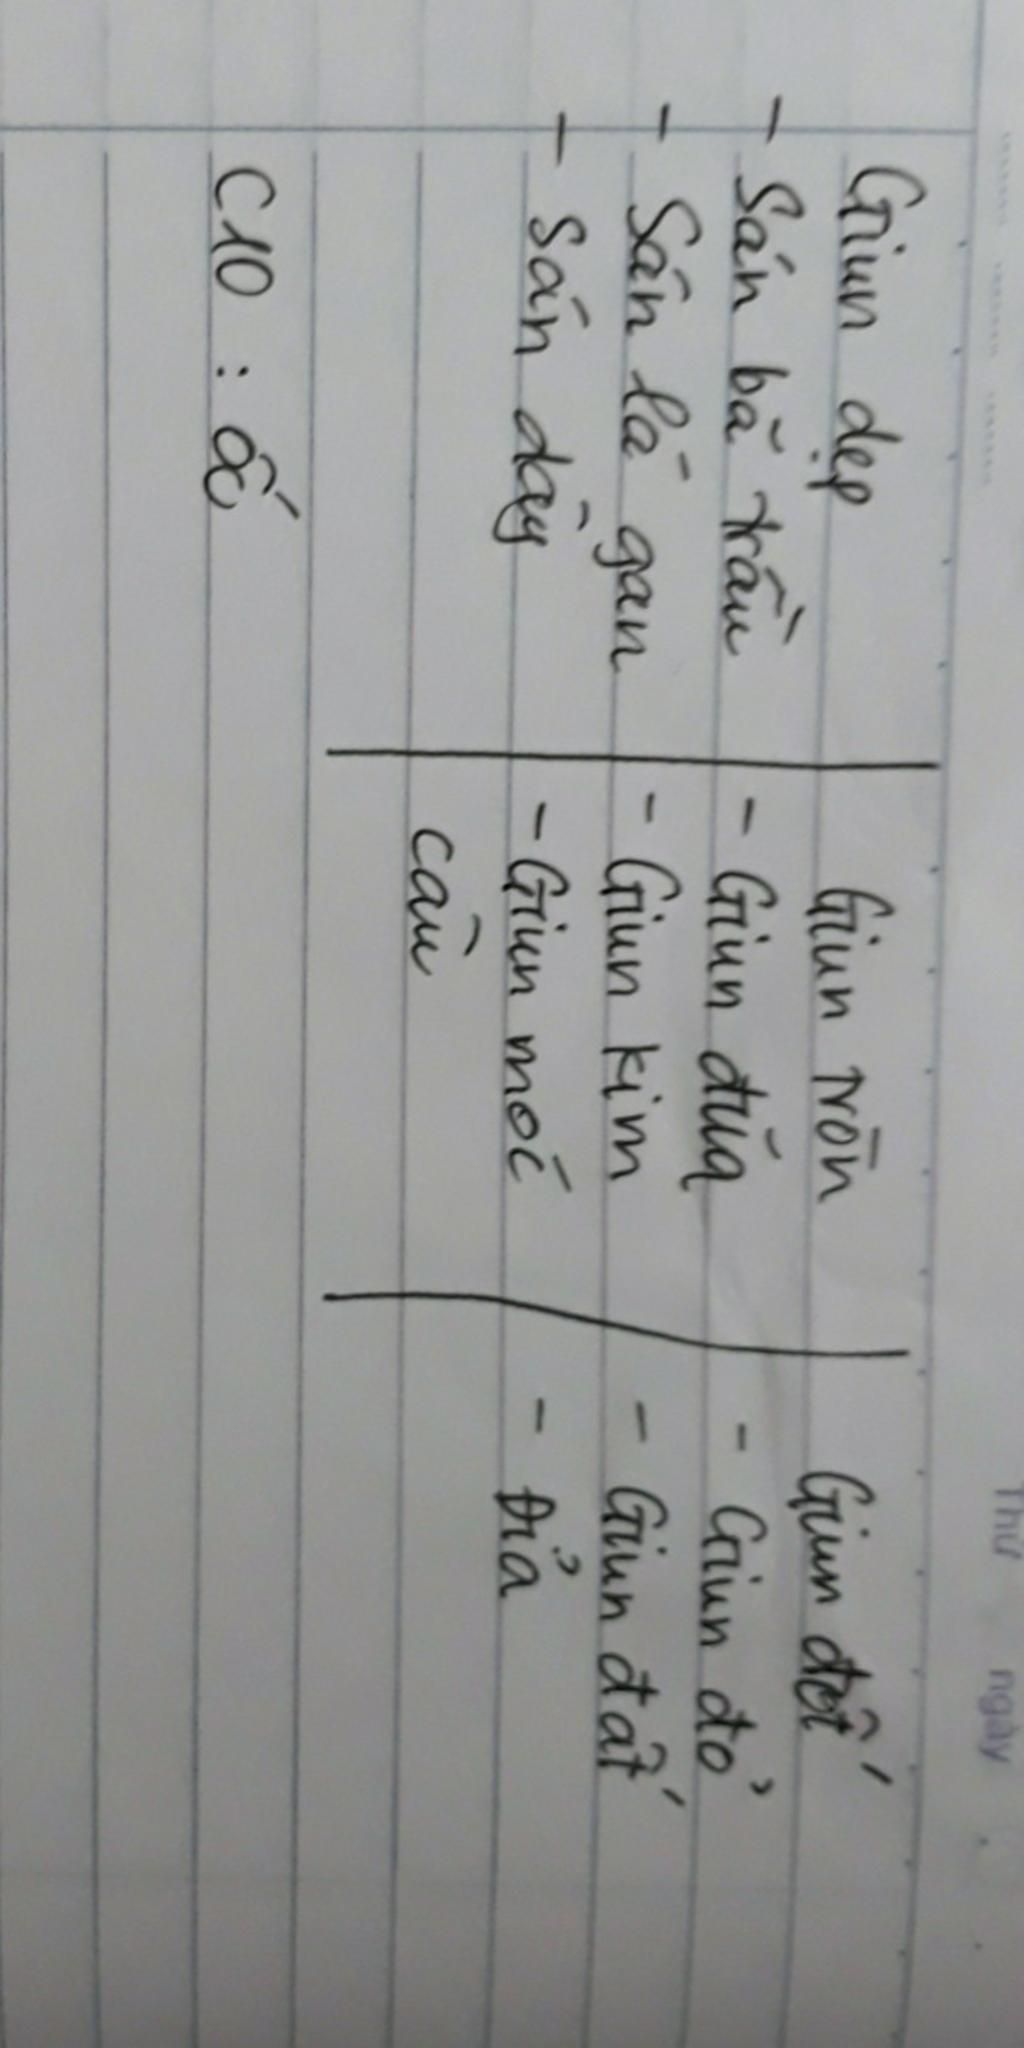 Thứ ngày
Giun dẹp Giun tròn Giun đốt
- Sán bã trầu - Giun đũa - Giun đỏ
- Sán lá gan - Giun kim - Giun đất
- Sán dây - Giun móc - Đỉa
câu
C10 :